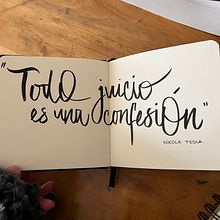 "Todo juicio
es una confesión"
NIKOLA TESLA